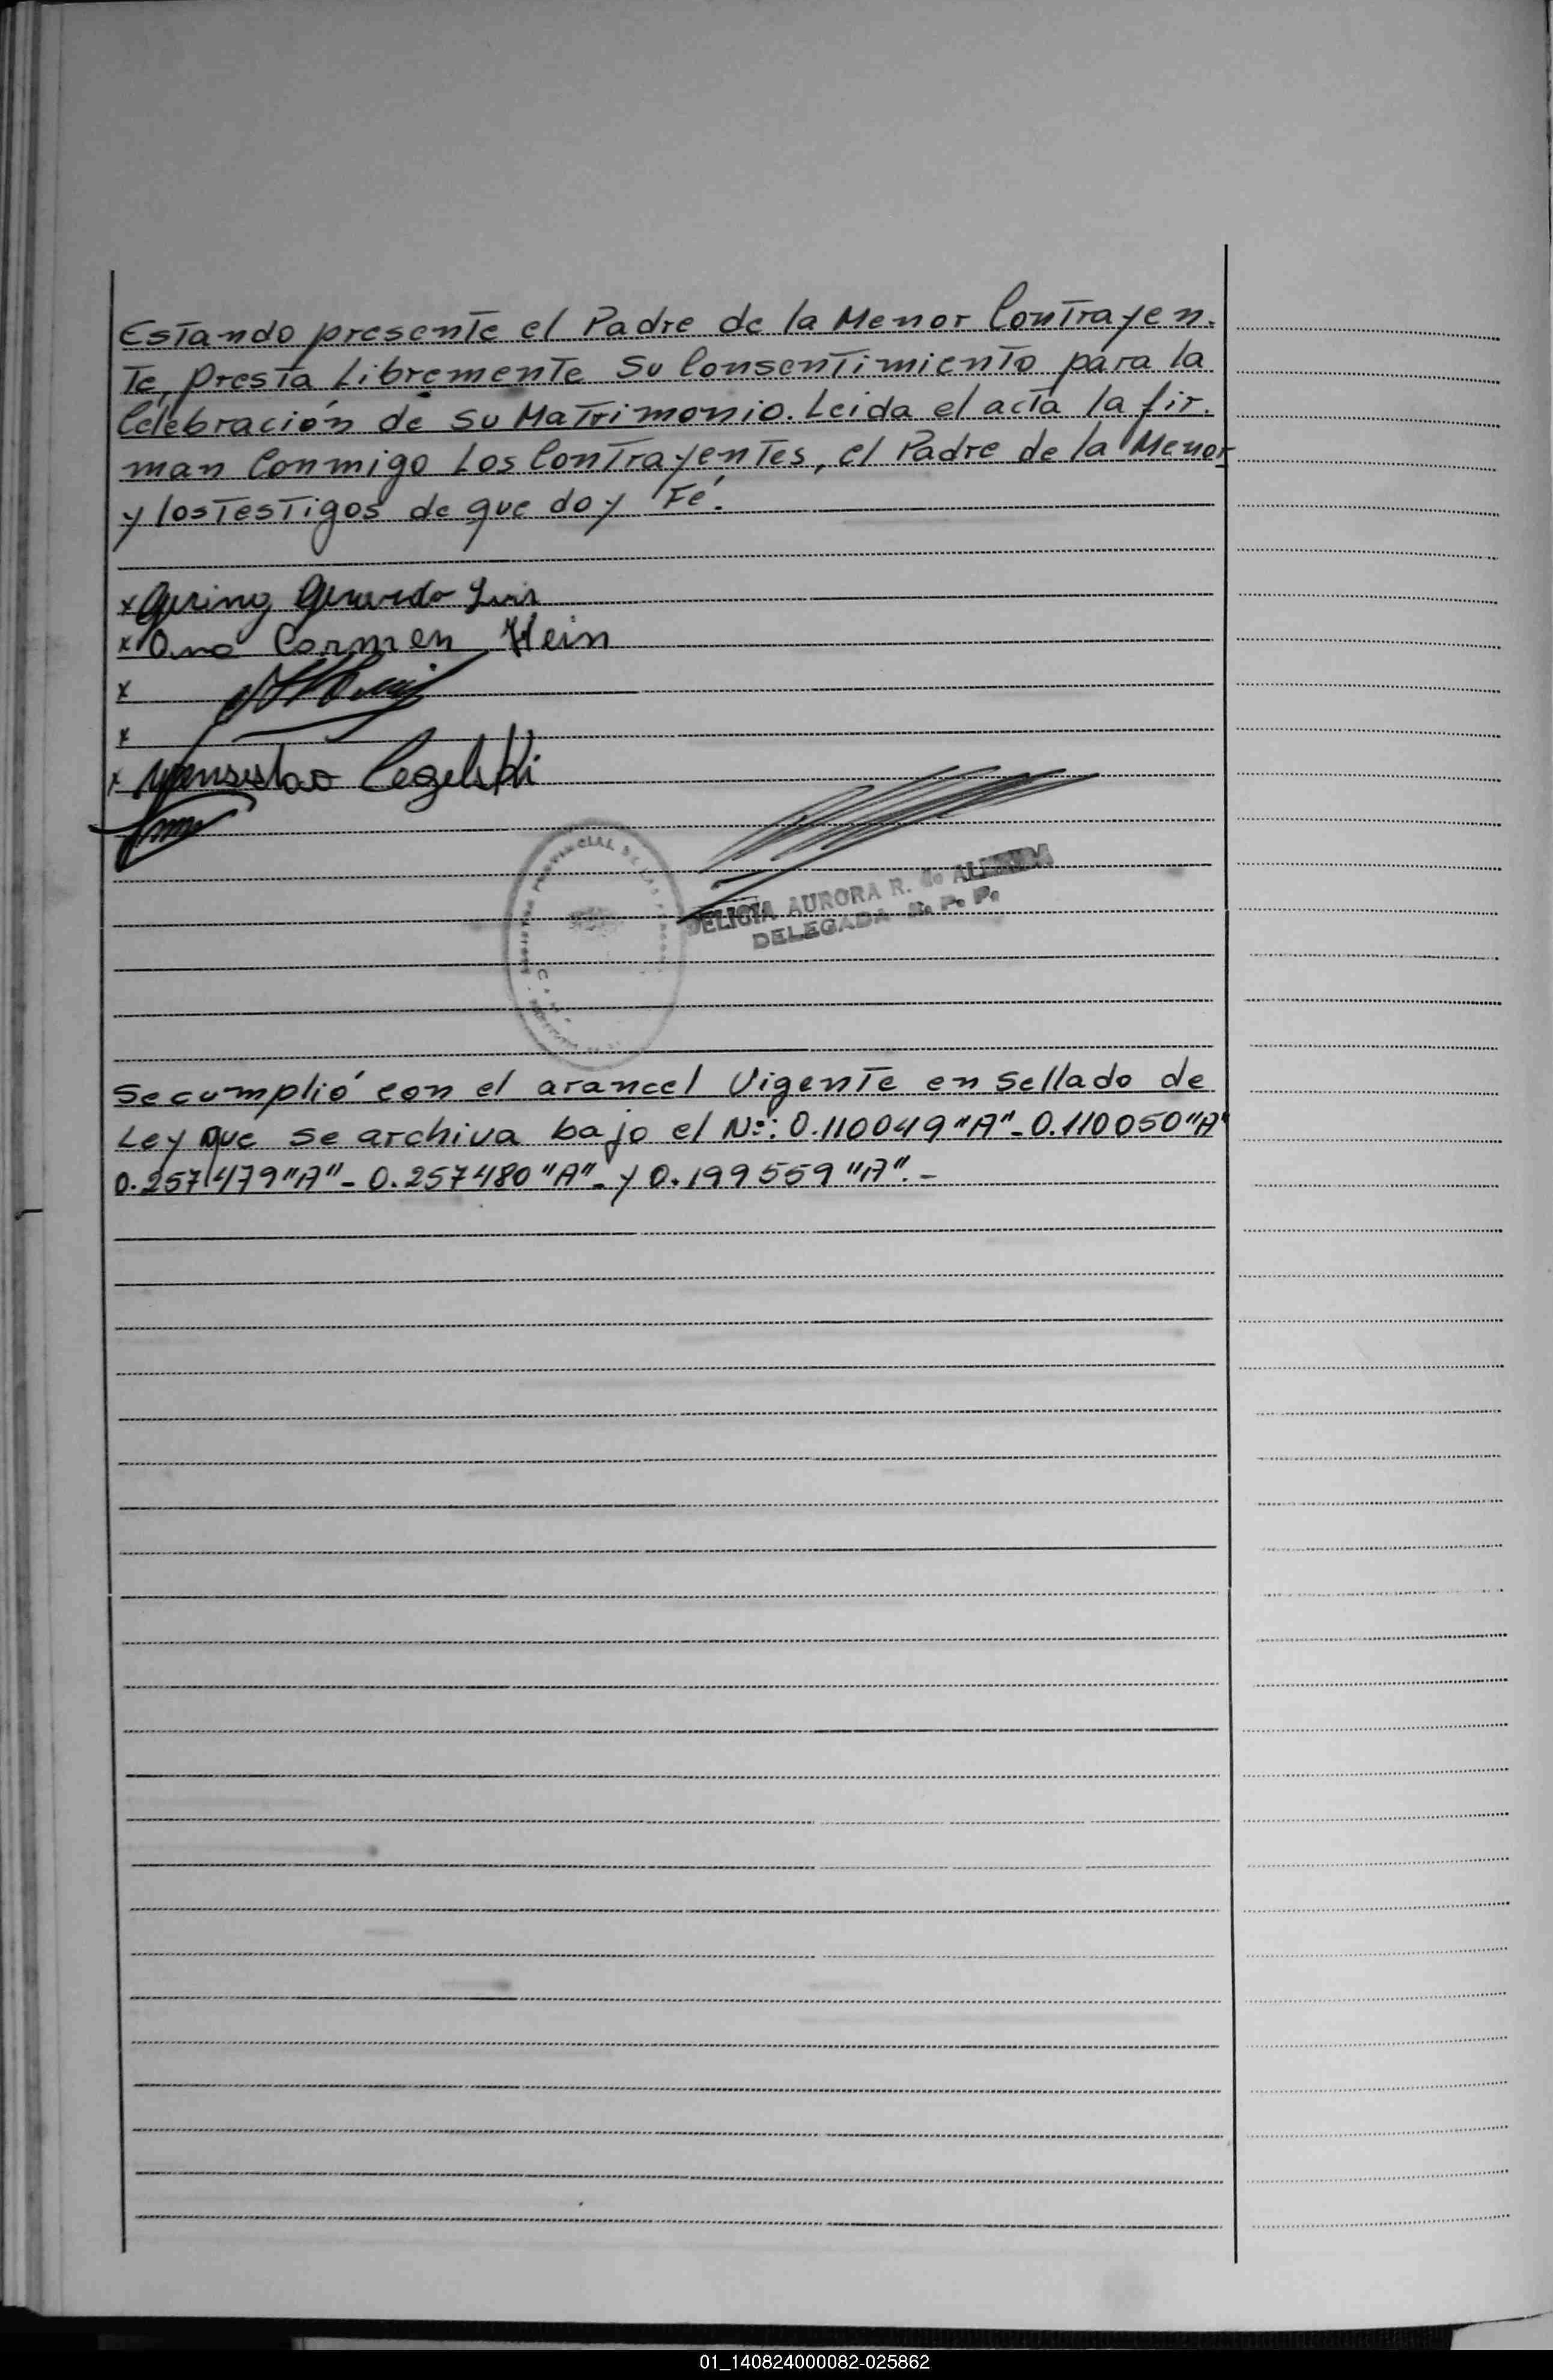 Estando presente el Padre de la Menor Contrayen.
te, Presta Libremente Su Consentimiento para la
Celebración de su Matrimonio. Leida el acta la fir.
man Conmigo Los Contrayentes, el Padre de la Menor
y los Testigos de que doy Fé.
x Gering Gerardo Luis
x Ana Carmen Hein
x
x
x Wenseslao Cegelski
DELICIA AURORA R. de
DELEGADA R. P. P.
Se cumplió con el arancel Vigente en Sellado de
Ley que se archiva bajo el Nº: 0.110049 "A" - 0.110050 "A"
0.257479 "A" - 0.257480 "A" - y 0.199559 "A". -
01_140824000082-025862